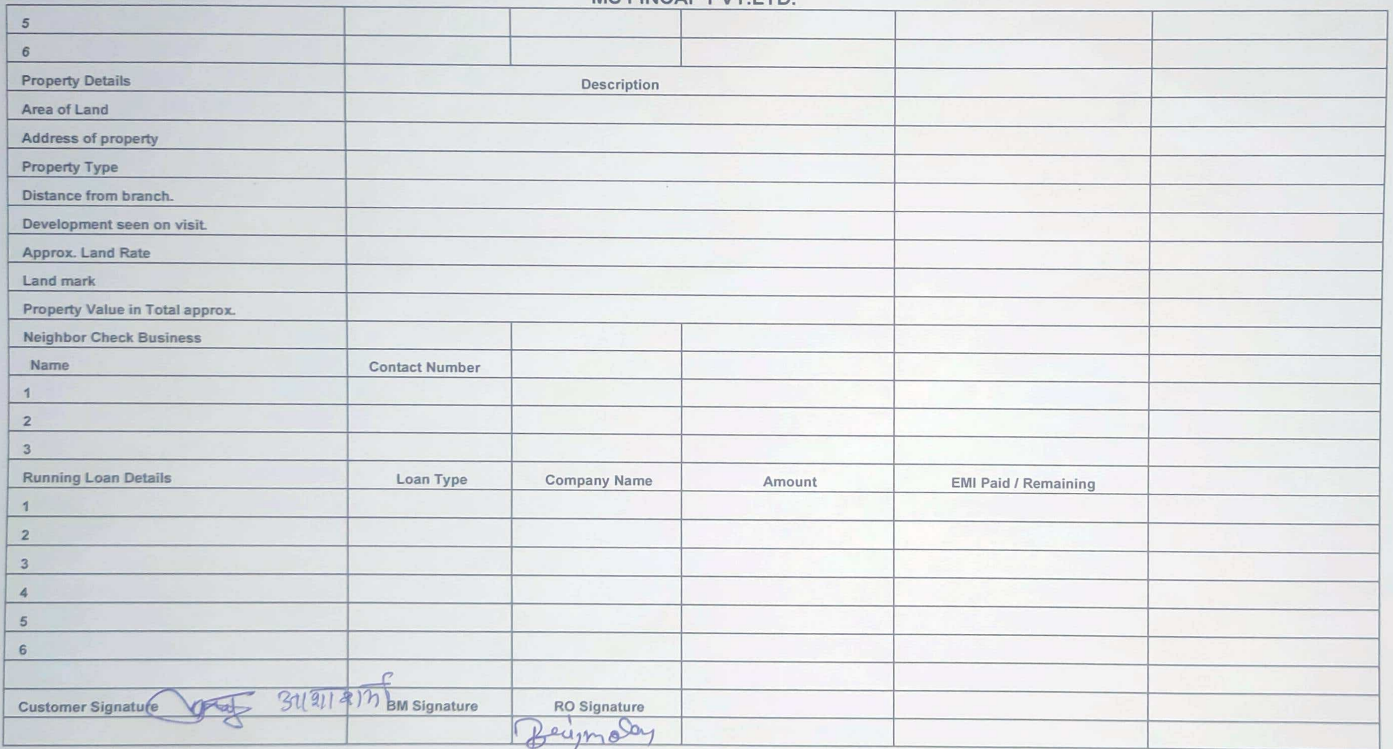 5
6
Property Details Description
Area of Land
Address of property
Property Type
Distance from branch.
Development seen on visit.
Approx. Land Rate
Land mark
Property Value in Total approx.
Neighbor Check Business
Name Contact Number
1
2
3
Running Loan Details Loan Type Company Name Amount EMI Paid / Remaining
1
2
3
4
5
6
Customer Signature आशा शर्मा BM Signature RO Signature